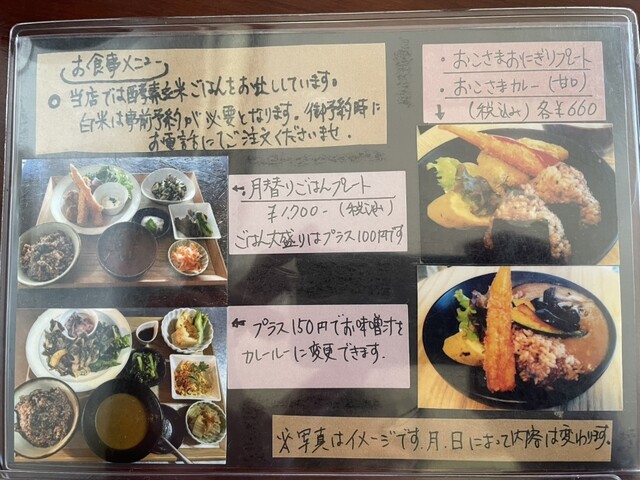 お食事メニュー
。当店では酵素玄米ごはんをお出ししています。
白米は事前予約が必要となります。御予約時に
お電話にてご注文くださいませ.
・おこさまおにぎりプレート
・おこさまカレー(甘口)
↓ (税込み)各¥660
・月替りごはんプレート
¥1,700-(税込み)
ごはん大盛りはプラス100円です
プラス150円でお味噌汁を
カレールーに変更できます.
※写真はイメージです.月.日によって内容は変わります。